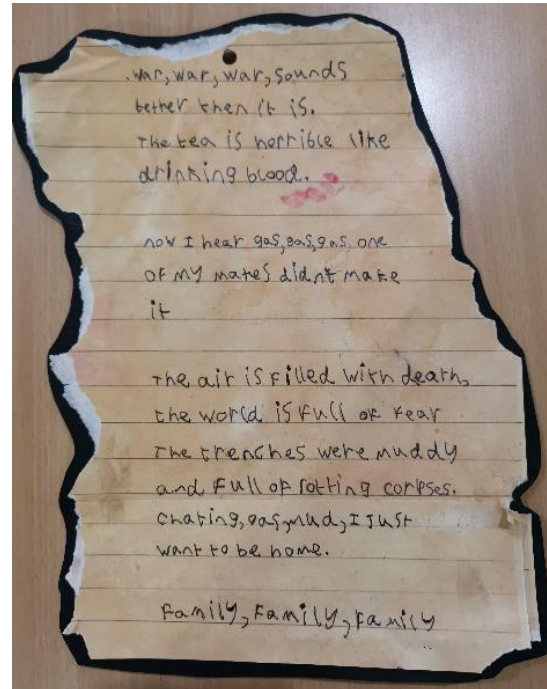 war, war, war, sounds
better then it is.
The tea is horrible like
drinking blood.
now I hear gas, gas, gas, one
of my mates didnt make
it
The air is filled with death,
the world is full of fear
The trenches were muddy
and full of rotting corpses.
Chating, gas, mud, I just
want to be home.
Family, Family, Family